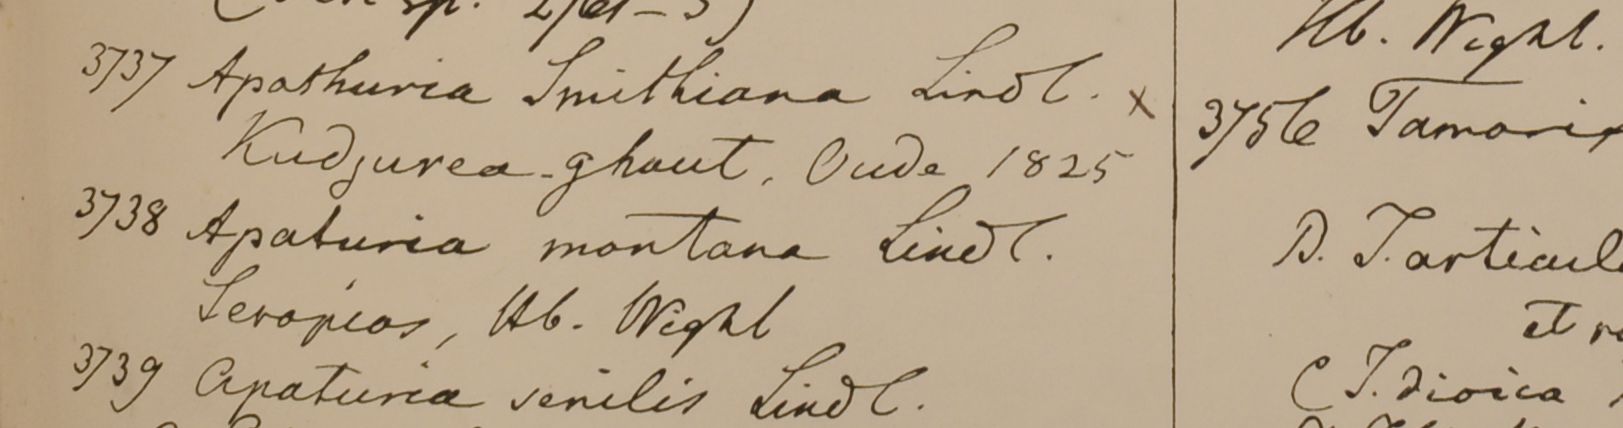 3737 Apathuria Smithiana Lindl. x
Kudjurea-ghaut, Oude 1825
3738 Apaturia montana Lindl.
Serapias, Hb. Wight
3739 Apaturia senilis Lindl.
Hb. Wight.
3756 Tamarix
B. T. articul
et
C T. dioica